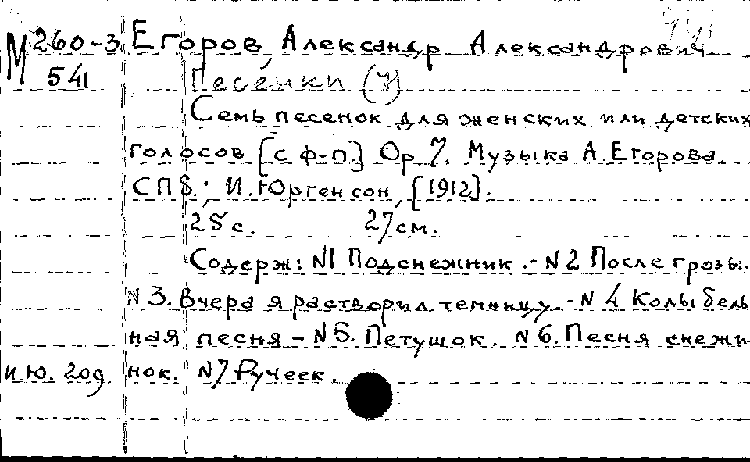 М 260-3 Егоров, Александр Александрович
541 Песенки (7)
Семь песенок для женских или детских
голосов [с ф-п.] Op 7. Музыка А. Егорова
СПб; И. Юргенсон, [1912].
25 с. 27 см.
Содерж: N1 Подснежник. - N2 После грозы.
N3. Вчера я растворил темницу. - N4 Колыбель
ная песня - N5. Петушок. N6. Песня снежи
и.ю. 209. нок. N7 Ручеек.